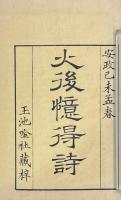 安政己未孟春
火後憶得詩
玉池唫社藏梓